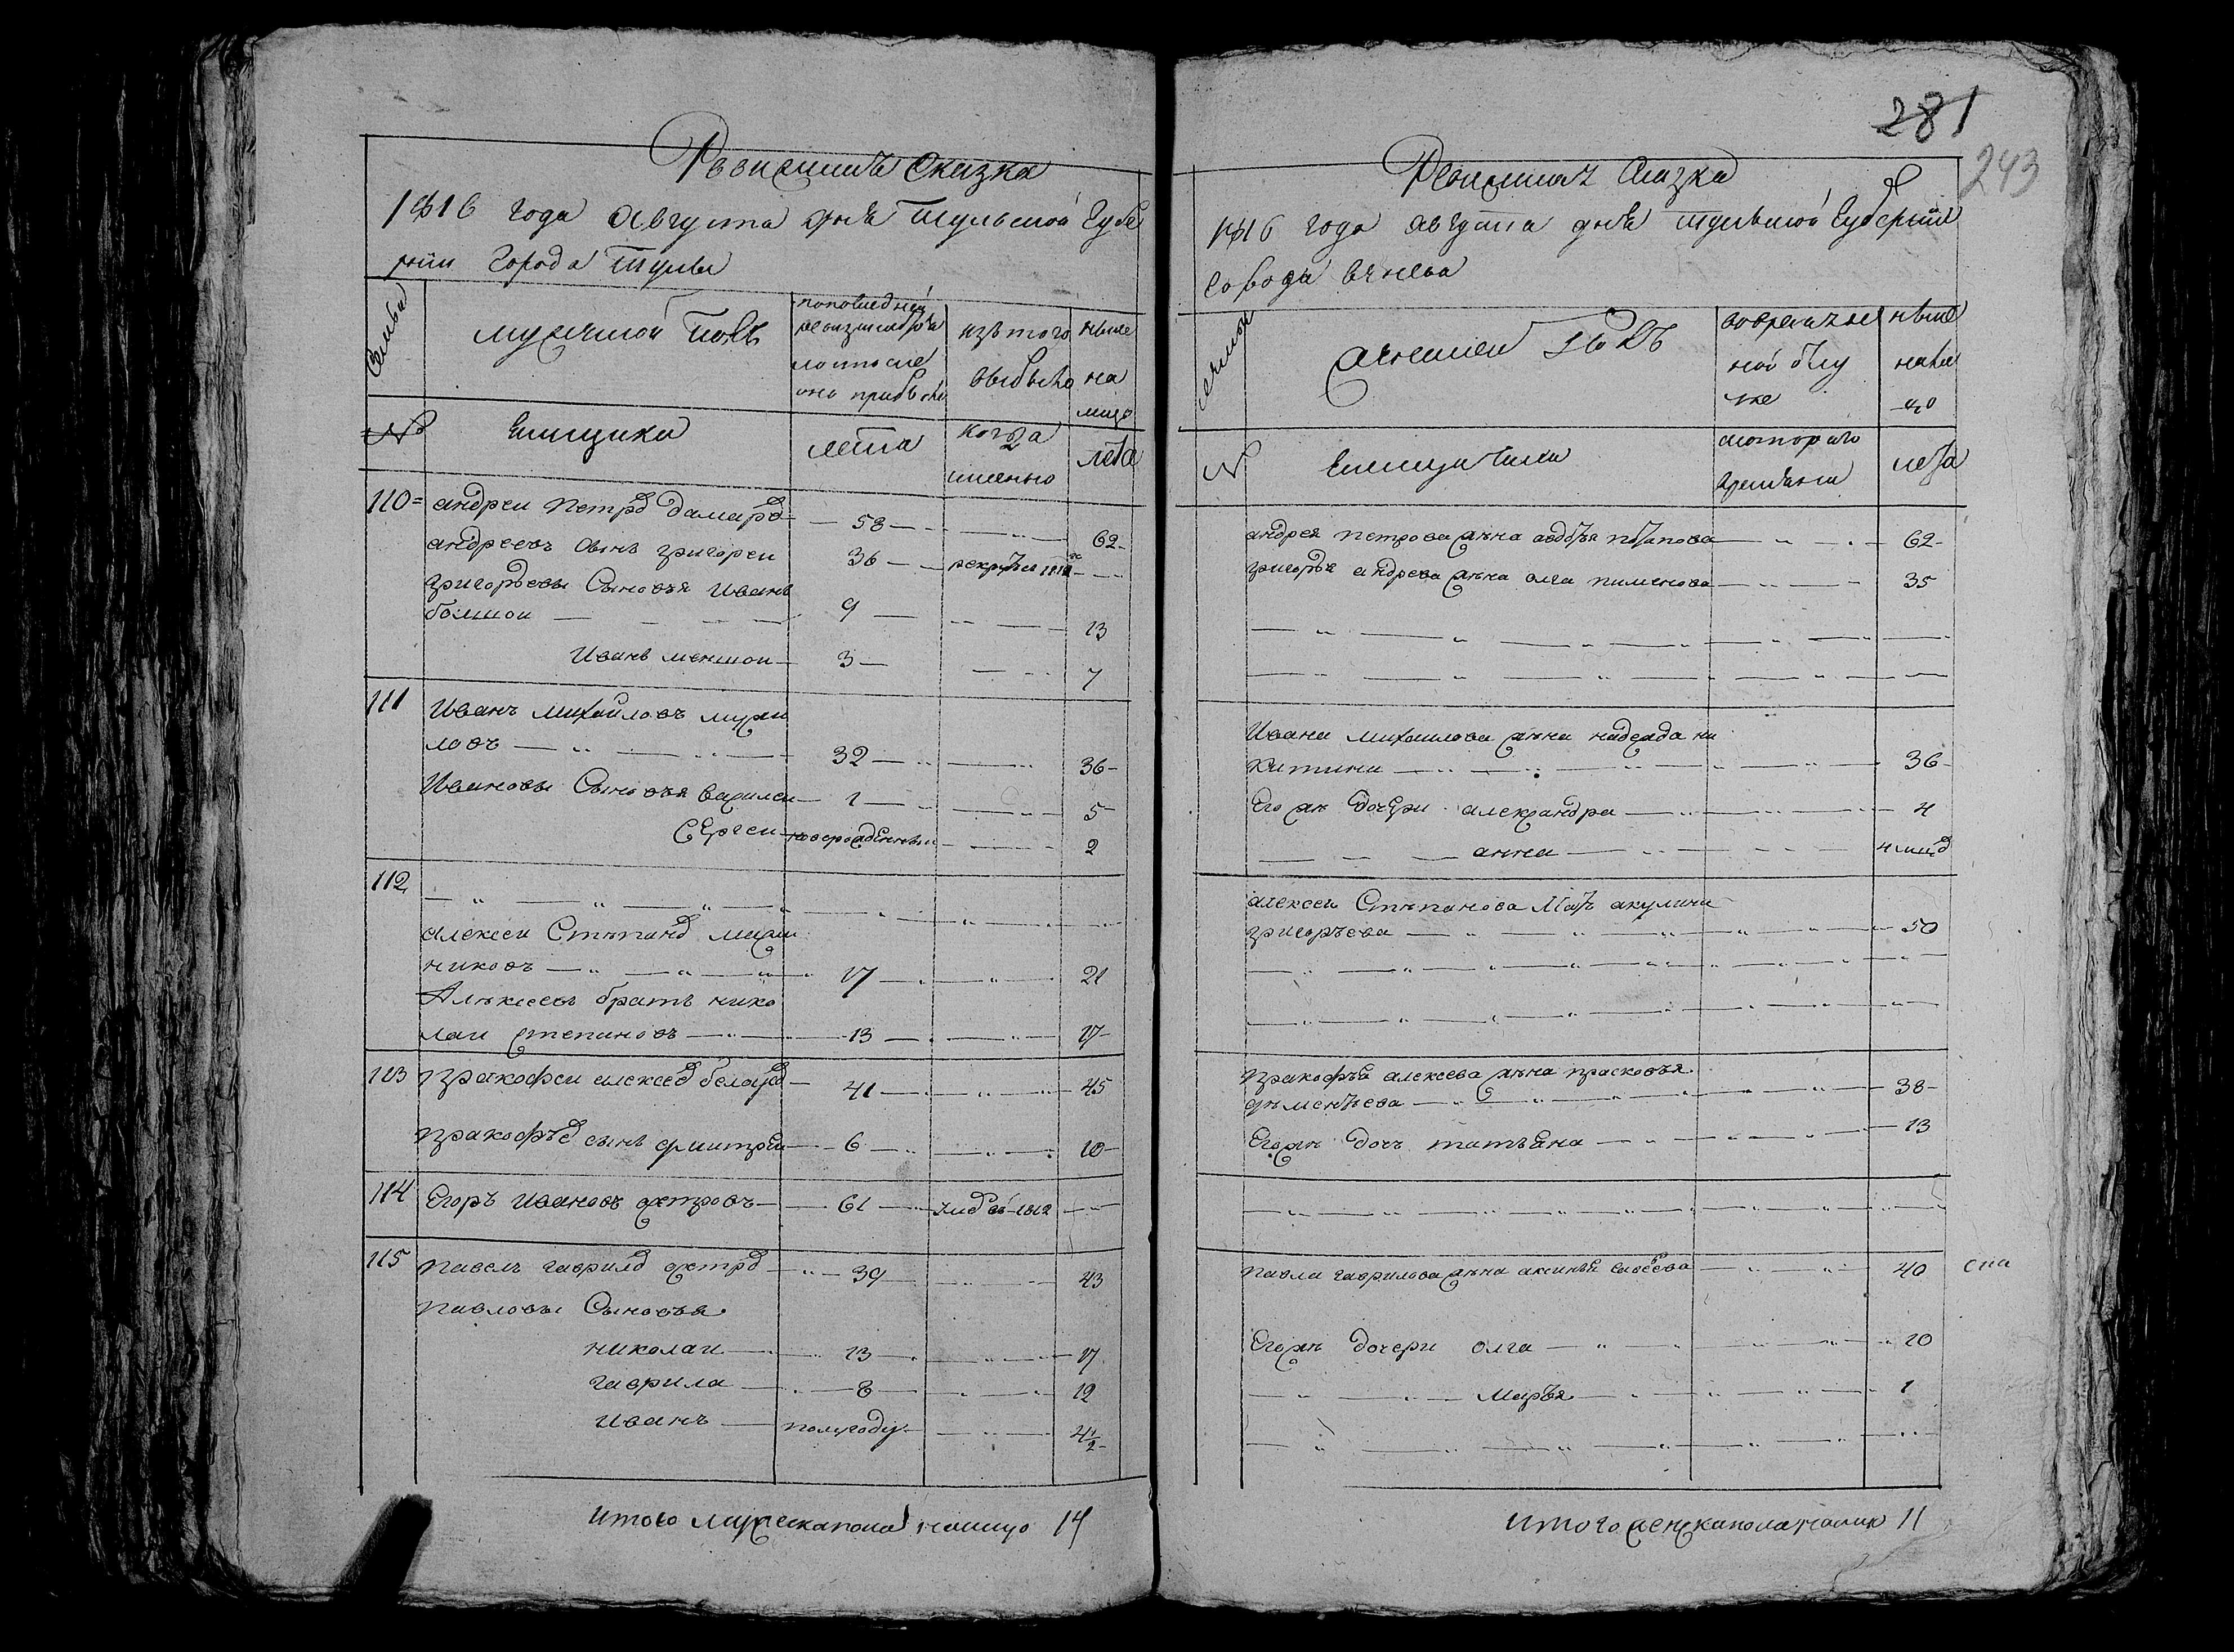 Ревизская Сказка
1816 года Августа дня Тульской Губе
рнии Города Тулы
Семьи
мужеской полъ
по последней
ревизии было
и после
оно прибыло
изъ того
выбыло
ныне
на
лицо
№
Емщики
лета
когда
имянно
лета
110 андреи Петров дамаров 58 62
андреевъ сынъ григореи 36 рекруты 1812
григорьевы Сыновья Иванъ
болшои 9 13
Иванъ меншои 3 7
111 Иванъ михаиловъ
ловъ 32 36
Ивановы Сыновья Василеи 1 5
Сергеи новорожденныи 2
112
алексеи Степанов
никовъ 17 21
Алексеевъ братъ нико
лаи степановъ 13 17
113 Пракофеи алексеев 41 45
Пракофьев сынъ дмитреи 6 10
114 Егоръ Ивановъ островъ 61 1812
115 Павелъ гаврилов остров 39 43
Павловы Сыновья
николаи 13 17
гаврила 8 12
иванъ полугоду 4 1/2
итого мужеска пола налицо 14
281
243
Ревизская Сказка
1816 года августа дня тульской Губернии
города венева
Семьи
женскои полъ
во времян
ной отлу
чке
ныне
нали
цо
№
Емщитски
с которого
времяни
лета
андрея петрова жена авдотья потапова 62
григорья андреева жена олга пименова 35
Ивана михаилова жена надежда ни
китина 36
Его жъ дочери александра 4
анна
алексея Степанова Мать акулина
григорьева 50
Пракофья алексеева жена прасковья
дементьева 38
Его жъ дочь татьяна 13
павла гаврилова жена аксинья савеева 40
Его жъ дочери олга 10
Марья 1
итого женска пола налицо 11